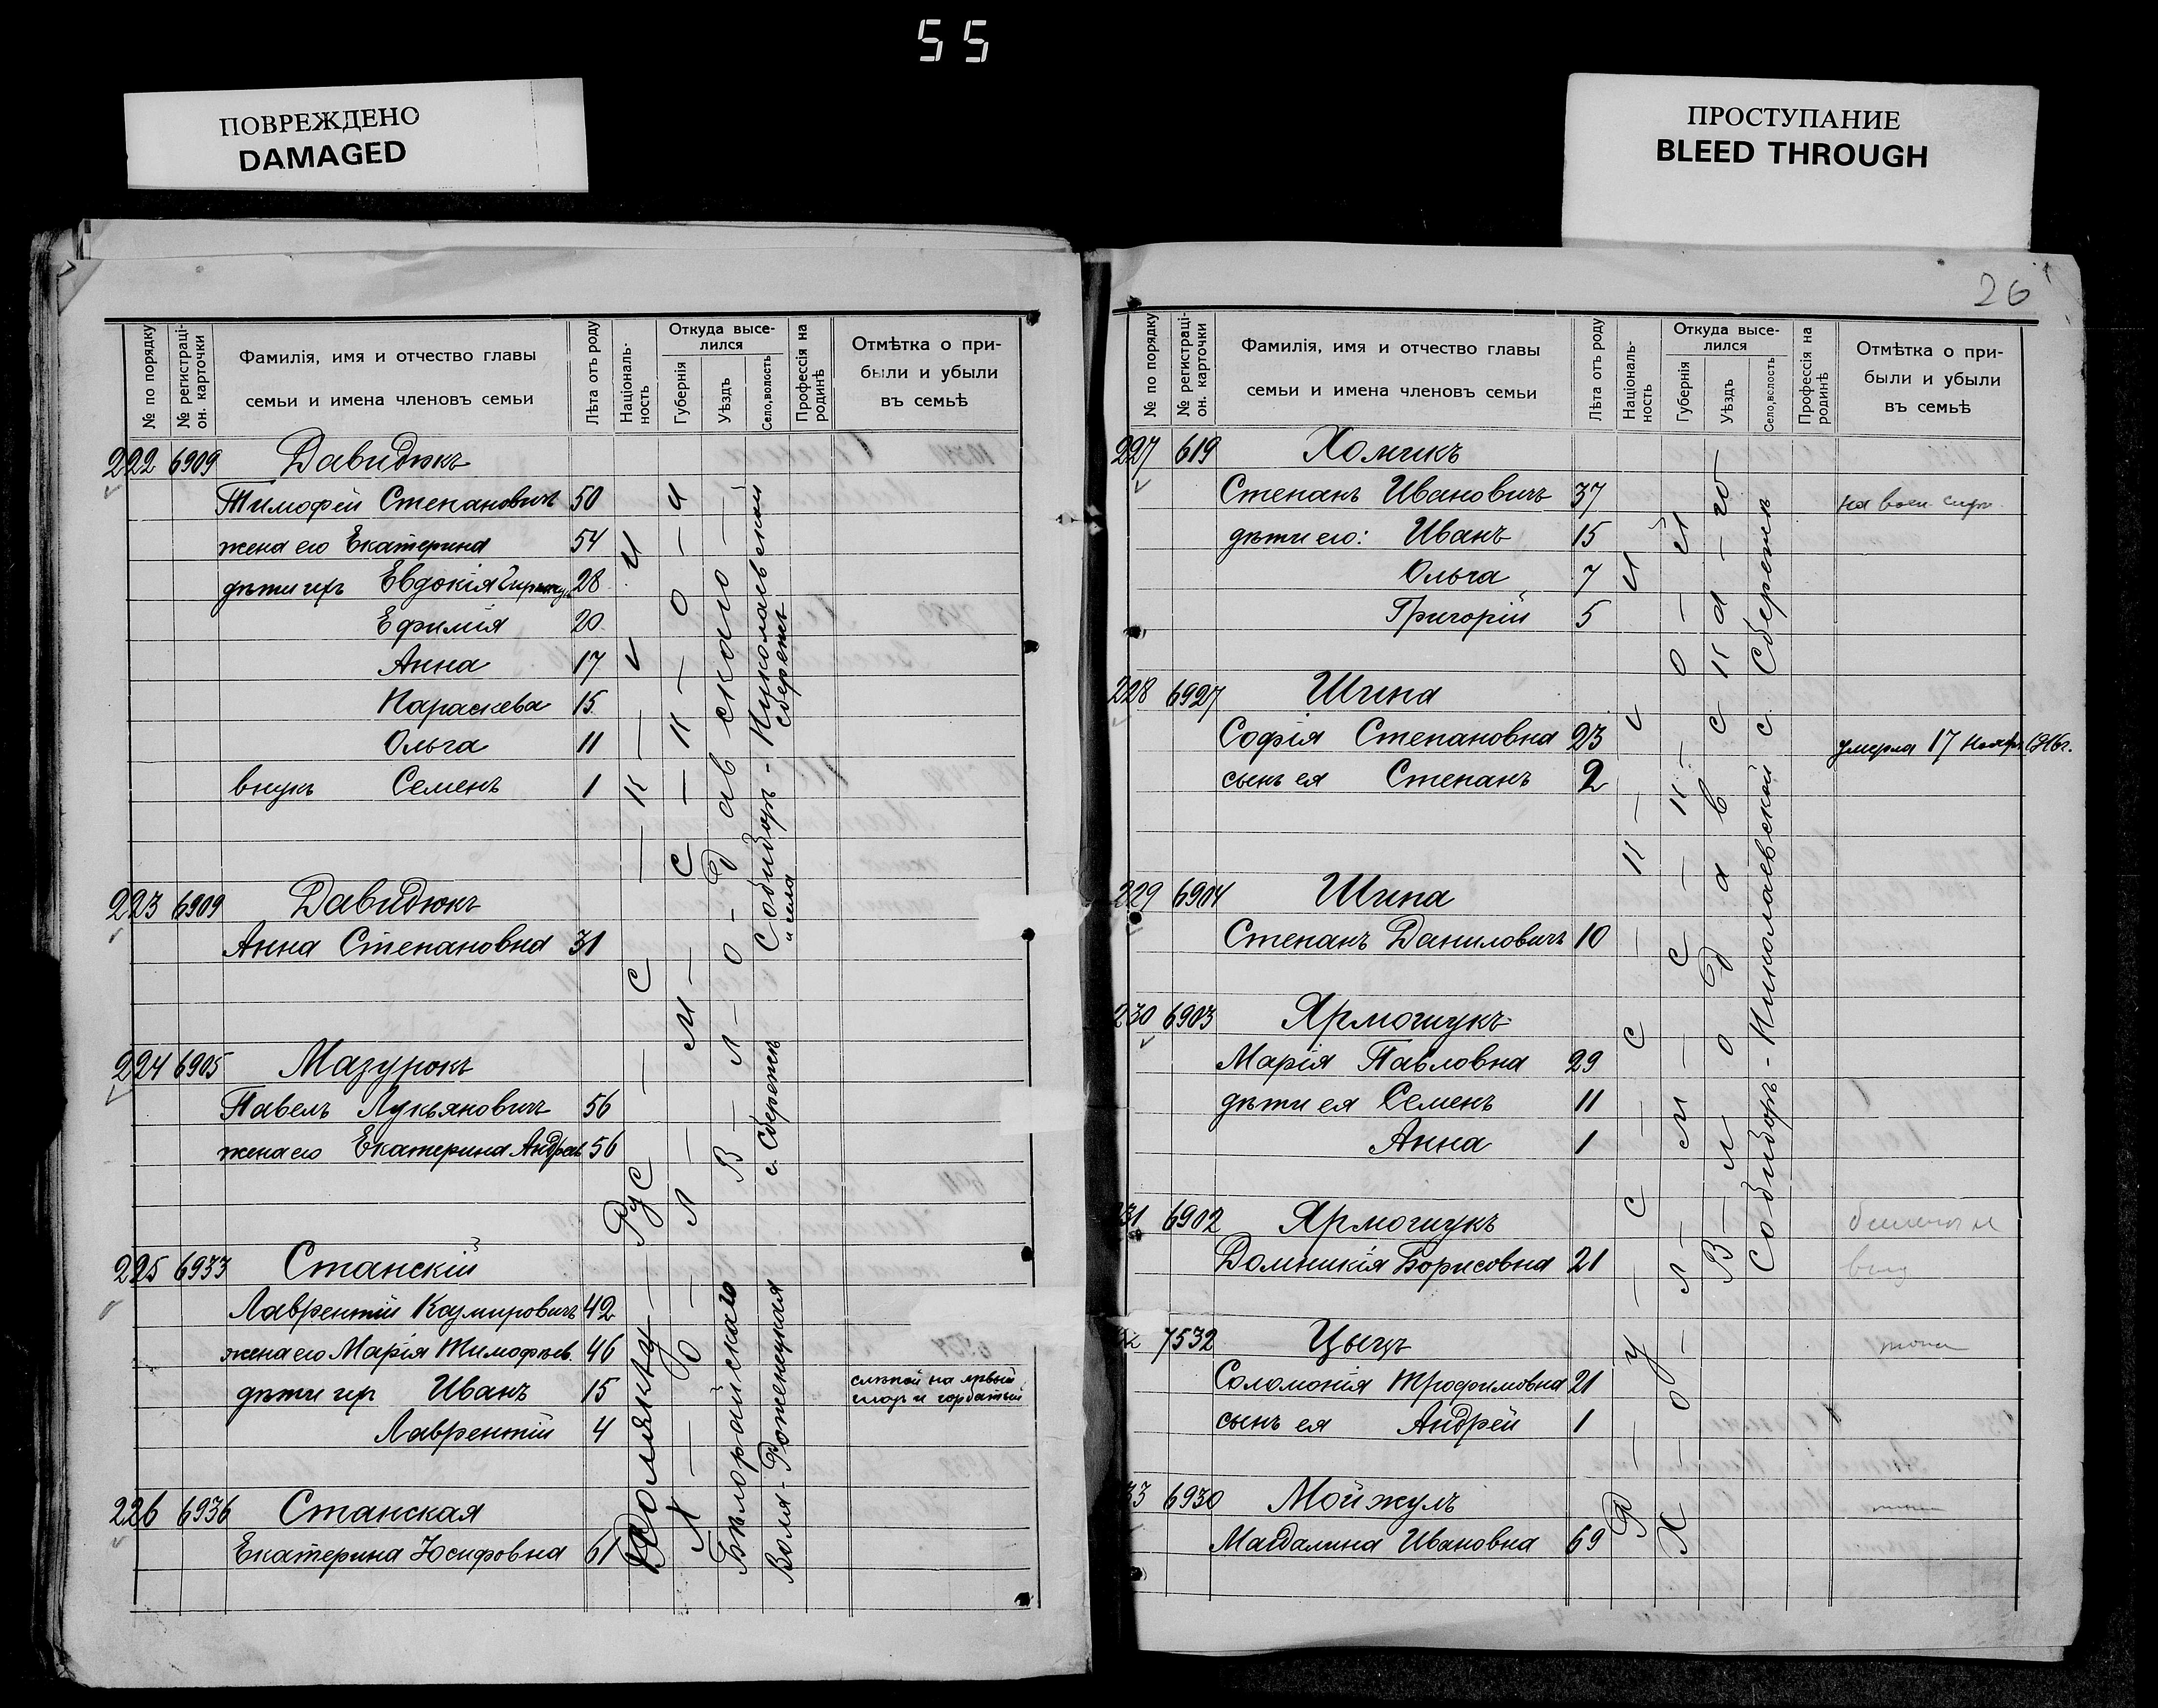 55
ПОВРЕЖДЕНО
DAMAGED
ПРОСТУПАНИЕ
BLEED THROUGH
№ по порядку
№ регистраці-
он. карточки
Фамилія, имя и отчество главы
семьи и имена членовъ семьи
Лѣта отъ роду
Націоналъ-
ность
Откуда высе-
лился
Губернія
Уѣздъ
Село, волость
Профессія на
родинѣ
Отмѣтка о при-
были и убыли
въ семьѣ
222 6909 Давидюкъ
Тимофей Степановичъ 50
жена его Екатерина 54
дѣти ихъ Евдокія 28
Ефимія 20
Анна 17
Параскева 15
Ольга 11
внукъ Семенъ 1
223 6909 Давидюкъ
Анна Степановна 31
224 6905 Мазурокъ
Павелъ Лукьяновичъ 56
жена его Екатерина Андреев 56
225 6933 Станскій
Лаврентій Казмировичъ 42
жена его Марія Тимофѣев. 46
дѣти ихъ Иванъ 15 слѣпой на лѣвый
глазъ и горбатый
Лаврентій 4
226 6936 Станская
Екатерина Юсифовна 61
Русскій
Холмской
Влодавскаго
Собиборъ - Николаевской
и села Збережъ
с. Збережъ
Бѣлорайскаго
Воля-Роженецкая
26
№ по порядку
№ регистраці-
он. карточки
Фамилія, имя и отчество главы
семьи и имена членовъ семьи
Лѣта отъ роду
Націоналъ-
ность
Откуда высе-
лился
Губернія
Уѣздъ
Село, волость
Профессія на
родинѣ
Отмѣтка о при-
были и убыли
въ семьѣ
227 619 Хомикъ
Степанъ Ивановичъ 37 на воен. служ.
дѣти его: Иванъ 15
Ольга 7
Григорій 5
228 6927 Шипа
Софія Степановна 23 умерла 17 Ноября 1916г.
сынъ ея Степанъ 2
229 6904 Шипа
Степанъ Даниловичъ 10
230 6903 Ярмошукъ
Марія Павловна 29
дѣти ея Семенъ 11
Анна 1
231 6902 Ярмошукъ
Домникія Борисовна 21
7532 Цыцъ
Соломонія Трофимовна 21
сынъ ея Андрей 1
33 6930 Мойжумъ
Магдалина Ивановна 69
Русскій
Холмской
Влодавскаго
Собиборъ - Николаевской с. Збережъ